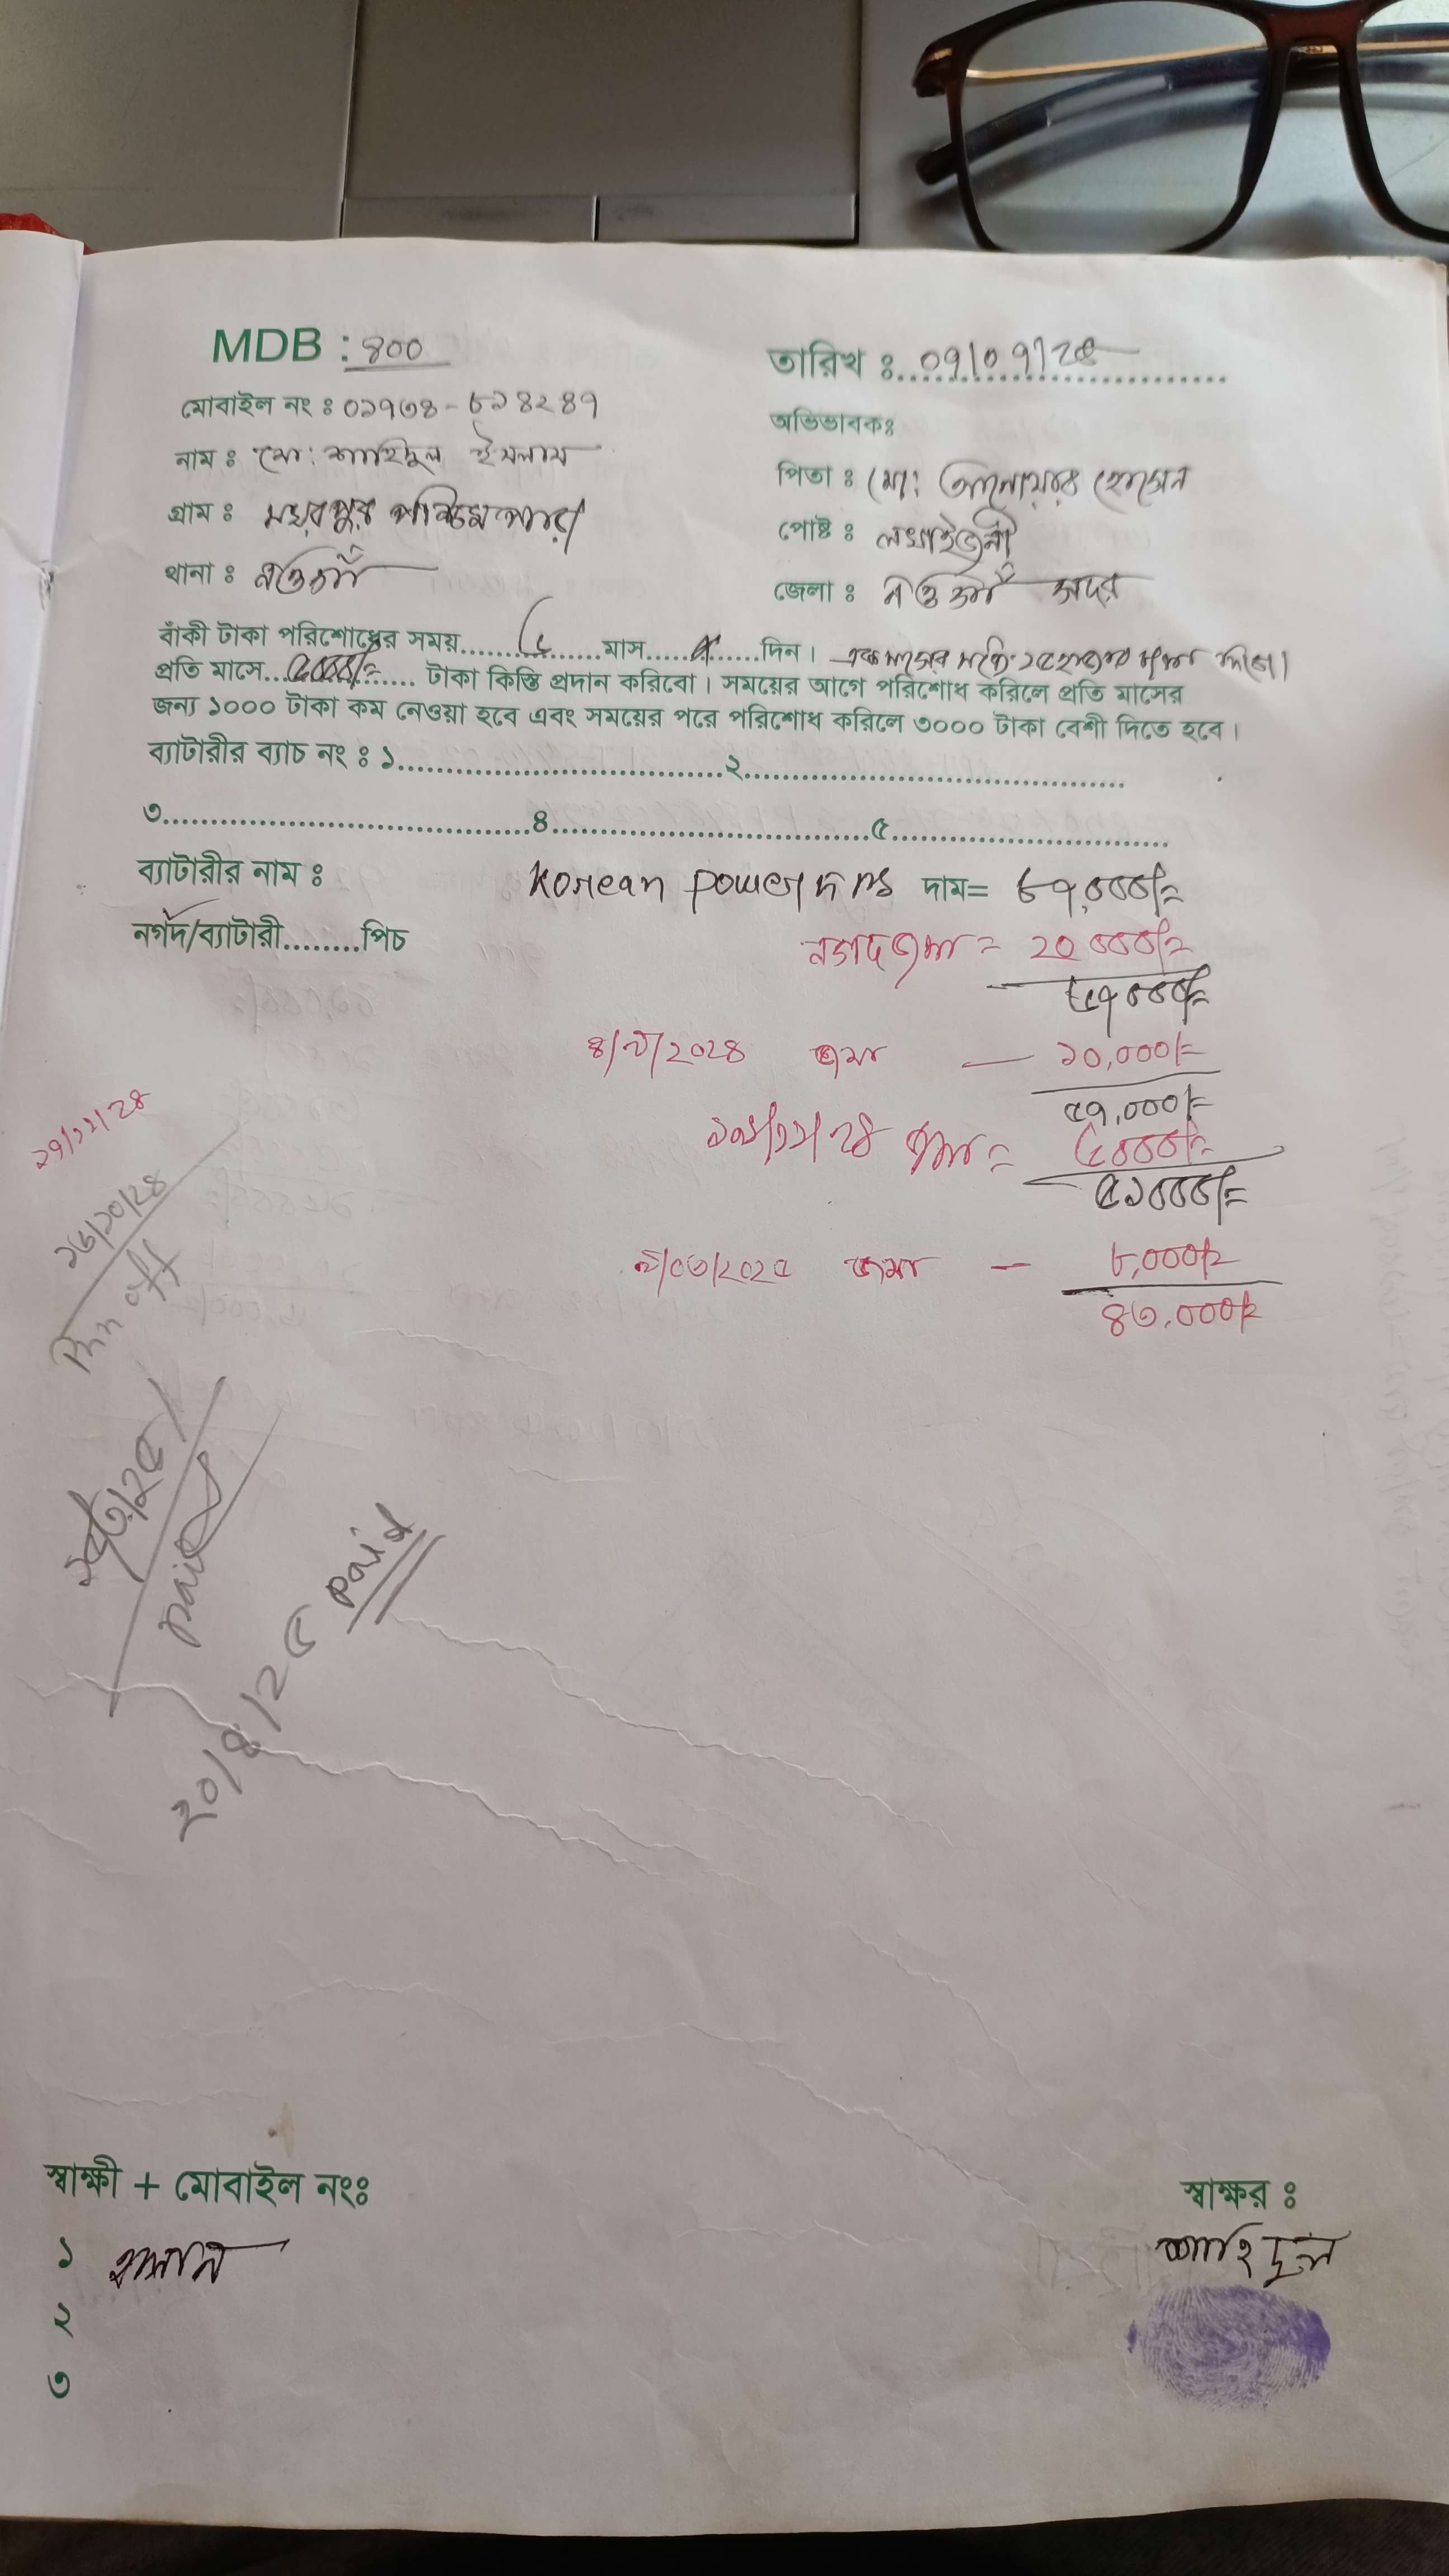 MDB : ৪০০
তারিখ ঃ ০৭/০৭/২৪
মোবাইল নং ঃ ০১৭৩৪-৮১৪২৪৭
অভিভাবকঃ
নাম ঃ মো: শাহিদুল ইসলাম
পিতা ঃ মো: আনোয়ার হোসেন
গ্রাম ঃ পশ্চিম পাড়া
পোষ্ট ঃ
থানা ঃ নওগাঁ
জেলা ঃ নওগাঁ সদর
বাঁকী টাকা পরিশোধের সময়.......... মাস.......... দিন।
প্রতি মাসে...৫০০০/=...... টাকা কিস্তি প্রদান করিবো। সময়ের আগে পরিশোধ করিলে প্রতি মাসের
জন্য ১০০০ টাকা কম নেওয়া হবে এবং সময়ের পরে পরিশোধ করিলে ৩০০০ টাকা বেশী দিতে হবে।
ব্যাটারীর ব্যাচ নং ঃ ১..............................২..............................
৩..............................৪..............................৫..............................
ব্যাটারীর নাম ঃ Korean power দাম= ৮৭,০০০/=
নগদ/ব্যাটারী........পিচ
নগদ জমা = ২০০০০/=
৬৭০০০/=
৪/৯/২০২৪ জমা — ১০,০০০/=
৫৭,০০০/=
২৭/১১/২৪
/১১/২৪ জমা = ৬০০০/=
৫১০০০/=
২৬/১০/২৪
Pnn off
৯/০৩/২০২৫ জমা — ৮,০০০/=
৪৩,০০০/=
/৩/২৫
paid
২০/৪/২৫ paid
স্বাক্ষী + মোবাইল নংঃ
স্বাক্ষর ঃ
১
শাহিদুল
২
৩